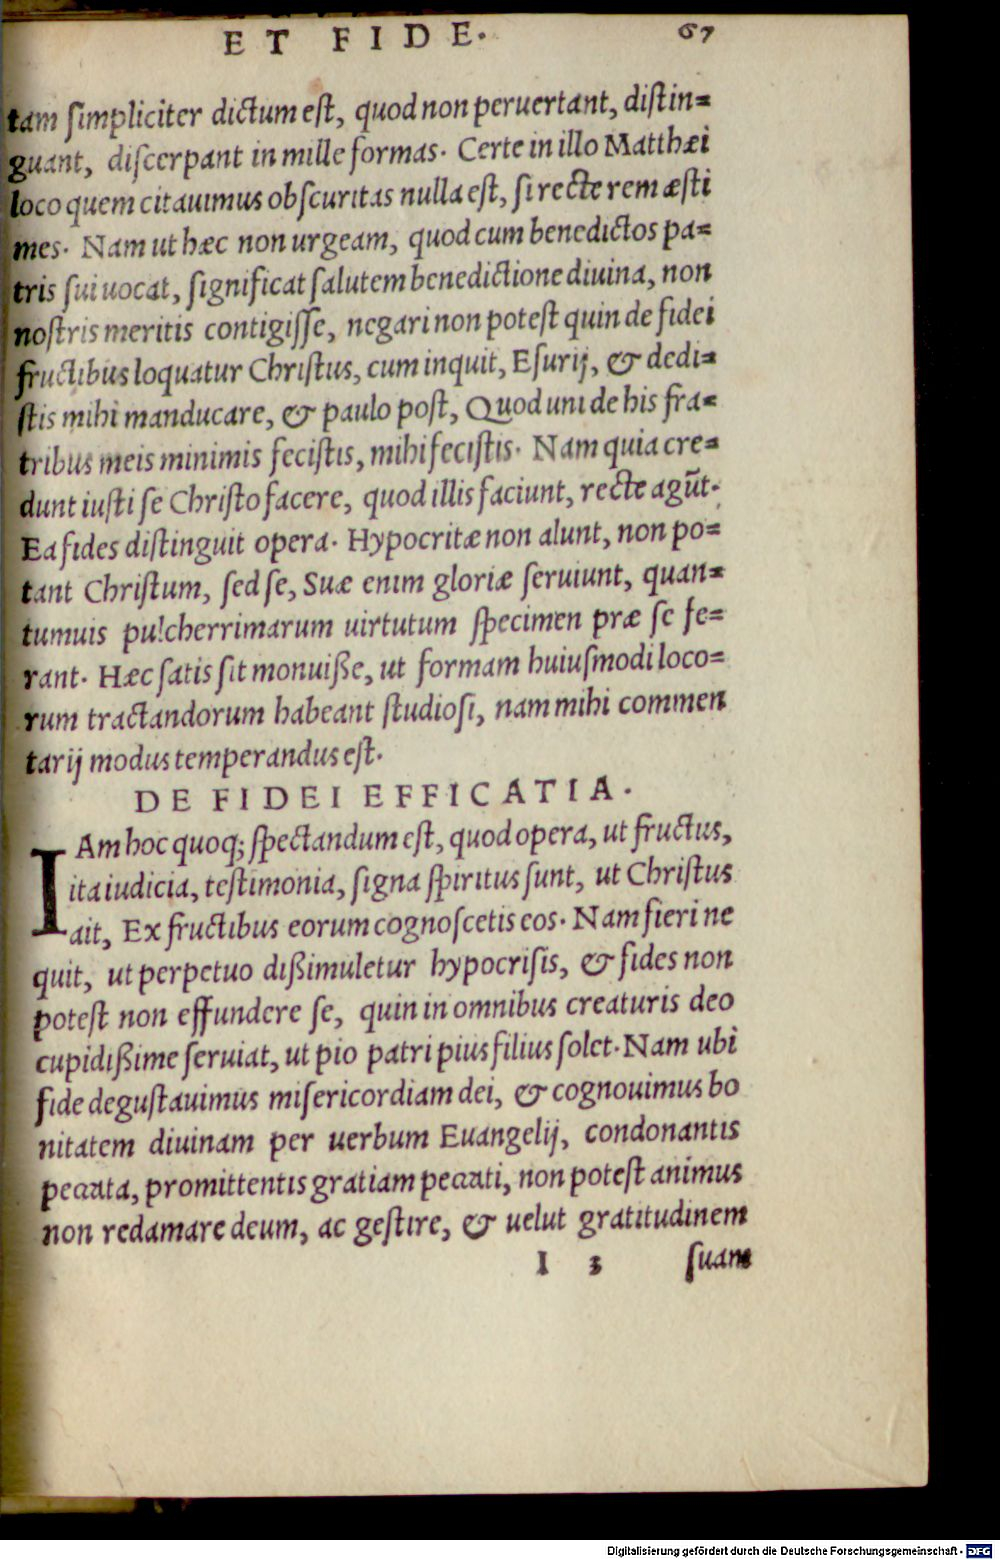 ET FIDE. 67
tam ſimpliciter dictum eſt, quod non peruertant, diſtin=
guant, diſcerpant in mille formas. Certe in illo Matthæi
loco quem citauimus obſcuritas nulla eſt, ſi recte rem æſti
mes. Nam ut hæc non urgeam, quod cum benedictos pa=
tris ſui uocat, ſignificat ſalutem benedictione diuina, non
noſtris meritis contigiſſe, negari non poteſt quin de fidei
fructibus loquatur Chriſtus, cum inquit, Eſurij, & dedi=
ſtis mihi manducare, & paulo poſt, Quod uni de his fra=
tribus meis minimis feciſtis, mihi feciſtis. Nam quia cre=
dunt iuſti ſe Chriſto facere, quod illis faciunt, recte agūt.
Ea fides diſtinguit opera. Hypocritæ non alunt, non po=
tant Chriſtum, ſed ſe, Suæ enim gloriæ ſeruiunt, quan=
tumuis pulcherrimarum uirtutum ſpecimen præ ſe fe=
rant. Hæc ſatis ſit monuiße, ut formam huiuſmodi loco=
rum tractandorum habeant ſtudioſi, nam mihi commen
tarij modus temperandus eſt.
DE FIDEI EFFICATIA.
IAm hoc quoq; ſpectandum eſt, quod opera, ut fructus,
ita iudicia, teſtimonia, ſigna ſpiritus ſunt, ut Chriſtus
ait, Ex fructibus eorum cognoſcetis eos. Nam fieri ne
quit, ut perpetuo dißimuletur hypocriſis, & fides non
poteſt non effundere ſe, quin in omnibus creaturis deo
cupidißime ſeruiat, ut pio patri pius filius ſolet. Nam ubi
fide deguſtauimus miſericordiam dei, & cognouimus bo
nitatem diuinam per uerbum Euangelij, condonantis
peccata, promittentis gratiam peccati, non poteſt animus
non redamare deum, ac geſtire, & uelut gratitudinem
I 3 ſuam
Digitalisierung gefördert durch die Deutsche Forschungsgemeinschaft - DFG